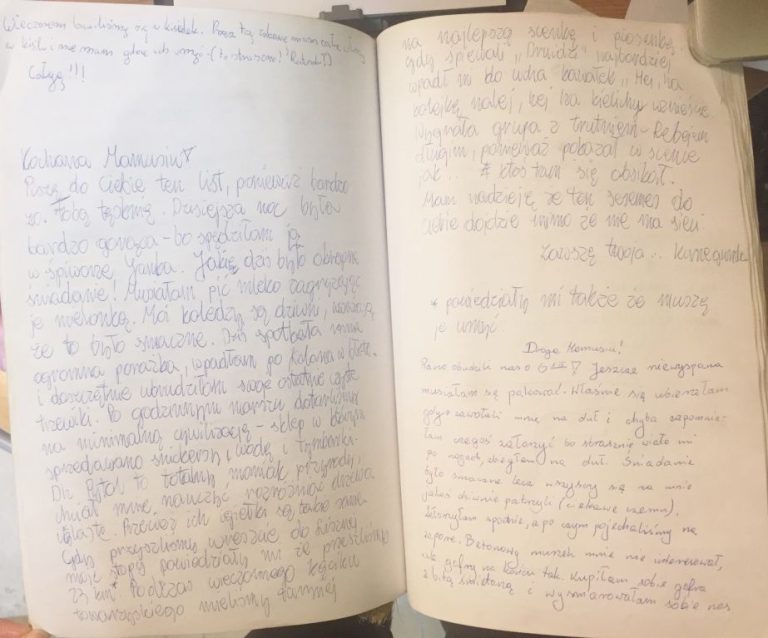 Wieczorem bawiliśmy się w kisielek. Poza tą zabawą musiałam
w kiśl i nie mam gdzie ich umyć (to straszne!
Całuję!!!
Kochana Mamusiu
Piszę do Ciebie ten list, ponieważ bardzo
za Tobą tęsknię. Dzisiejsza noc była
bardzo gorąca - bo spędziłam ją
w śpiworze Jakuba. Jakie dziś było obrzydliwe
śniadanie! Musiałam pić mleko zagryzając
je mielonką. Moi koledzy są dziwni, uważają
że to było smaczne. Dziś spotkała mnie
ogromna porażka, wpadłam po kolana w błoto.
i doszczętnie ubrudziłam swoje ostatnie czyste
trzewiki. Po godzinnym marszu dotarliśmy
na minimalną cywilizację - sklep w którym
sprzedawano snickersy, wodę i tymbarki.
Dh Pytel to totalny maniak przyrody,
chciał mnie nauczyć rozróżniać drzewa
iglaste. Przecież ich igiełki są takie same.
Gdy przyszliśmy wreszcie do
moje stopy powiedziały mi że przeszliśmy
23 km* Podczas wieczornego
towarzyskiego mieliśmy
na najlepszą scenkę i piosenkę.
gdy śpiewali "Druidzi" najbardziej
wpadł mi do ucha kawałek "Hej, na
kolejkę nalej, hej na kielichy wznieście.
Wygrała grupa z trutniem
długim, ponieważ pokazał w scence
jak... * ktoś tam się obsikał.
Mam nadzieję że ten sesemes do
ciebie dojdzie mimo że nie ma sieci
Zawsze twoja.. Kunegunda
* powiedziały mi także że muszę
je umyć
Droga Mamusiu!
Rano obudzili nas o 6 Jeszcze niewyspana
musiałam się pakować. Właśnie się ubierałam
gdy zawołali mnie na duł i chyba zapomnia-
łam czegoś założyć bo strasznie wiało mi
po nogach, zbiegłam na duł. Śniadanie
było smaczne lecz wszyscy się na mnie
jakoś dziwnie patrzyli (ciekawe czemu).
Założyłam spodnie, a po czym pojechaliśmy na
zaporę. Betonowy murek mnie nie interesował,
ale gofry na końcu tak. Kupiłam sobie gofra
z bitą śmietaną i wysmarowałam sobie nos